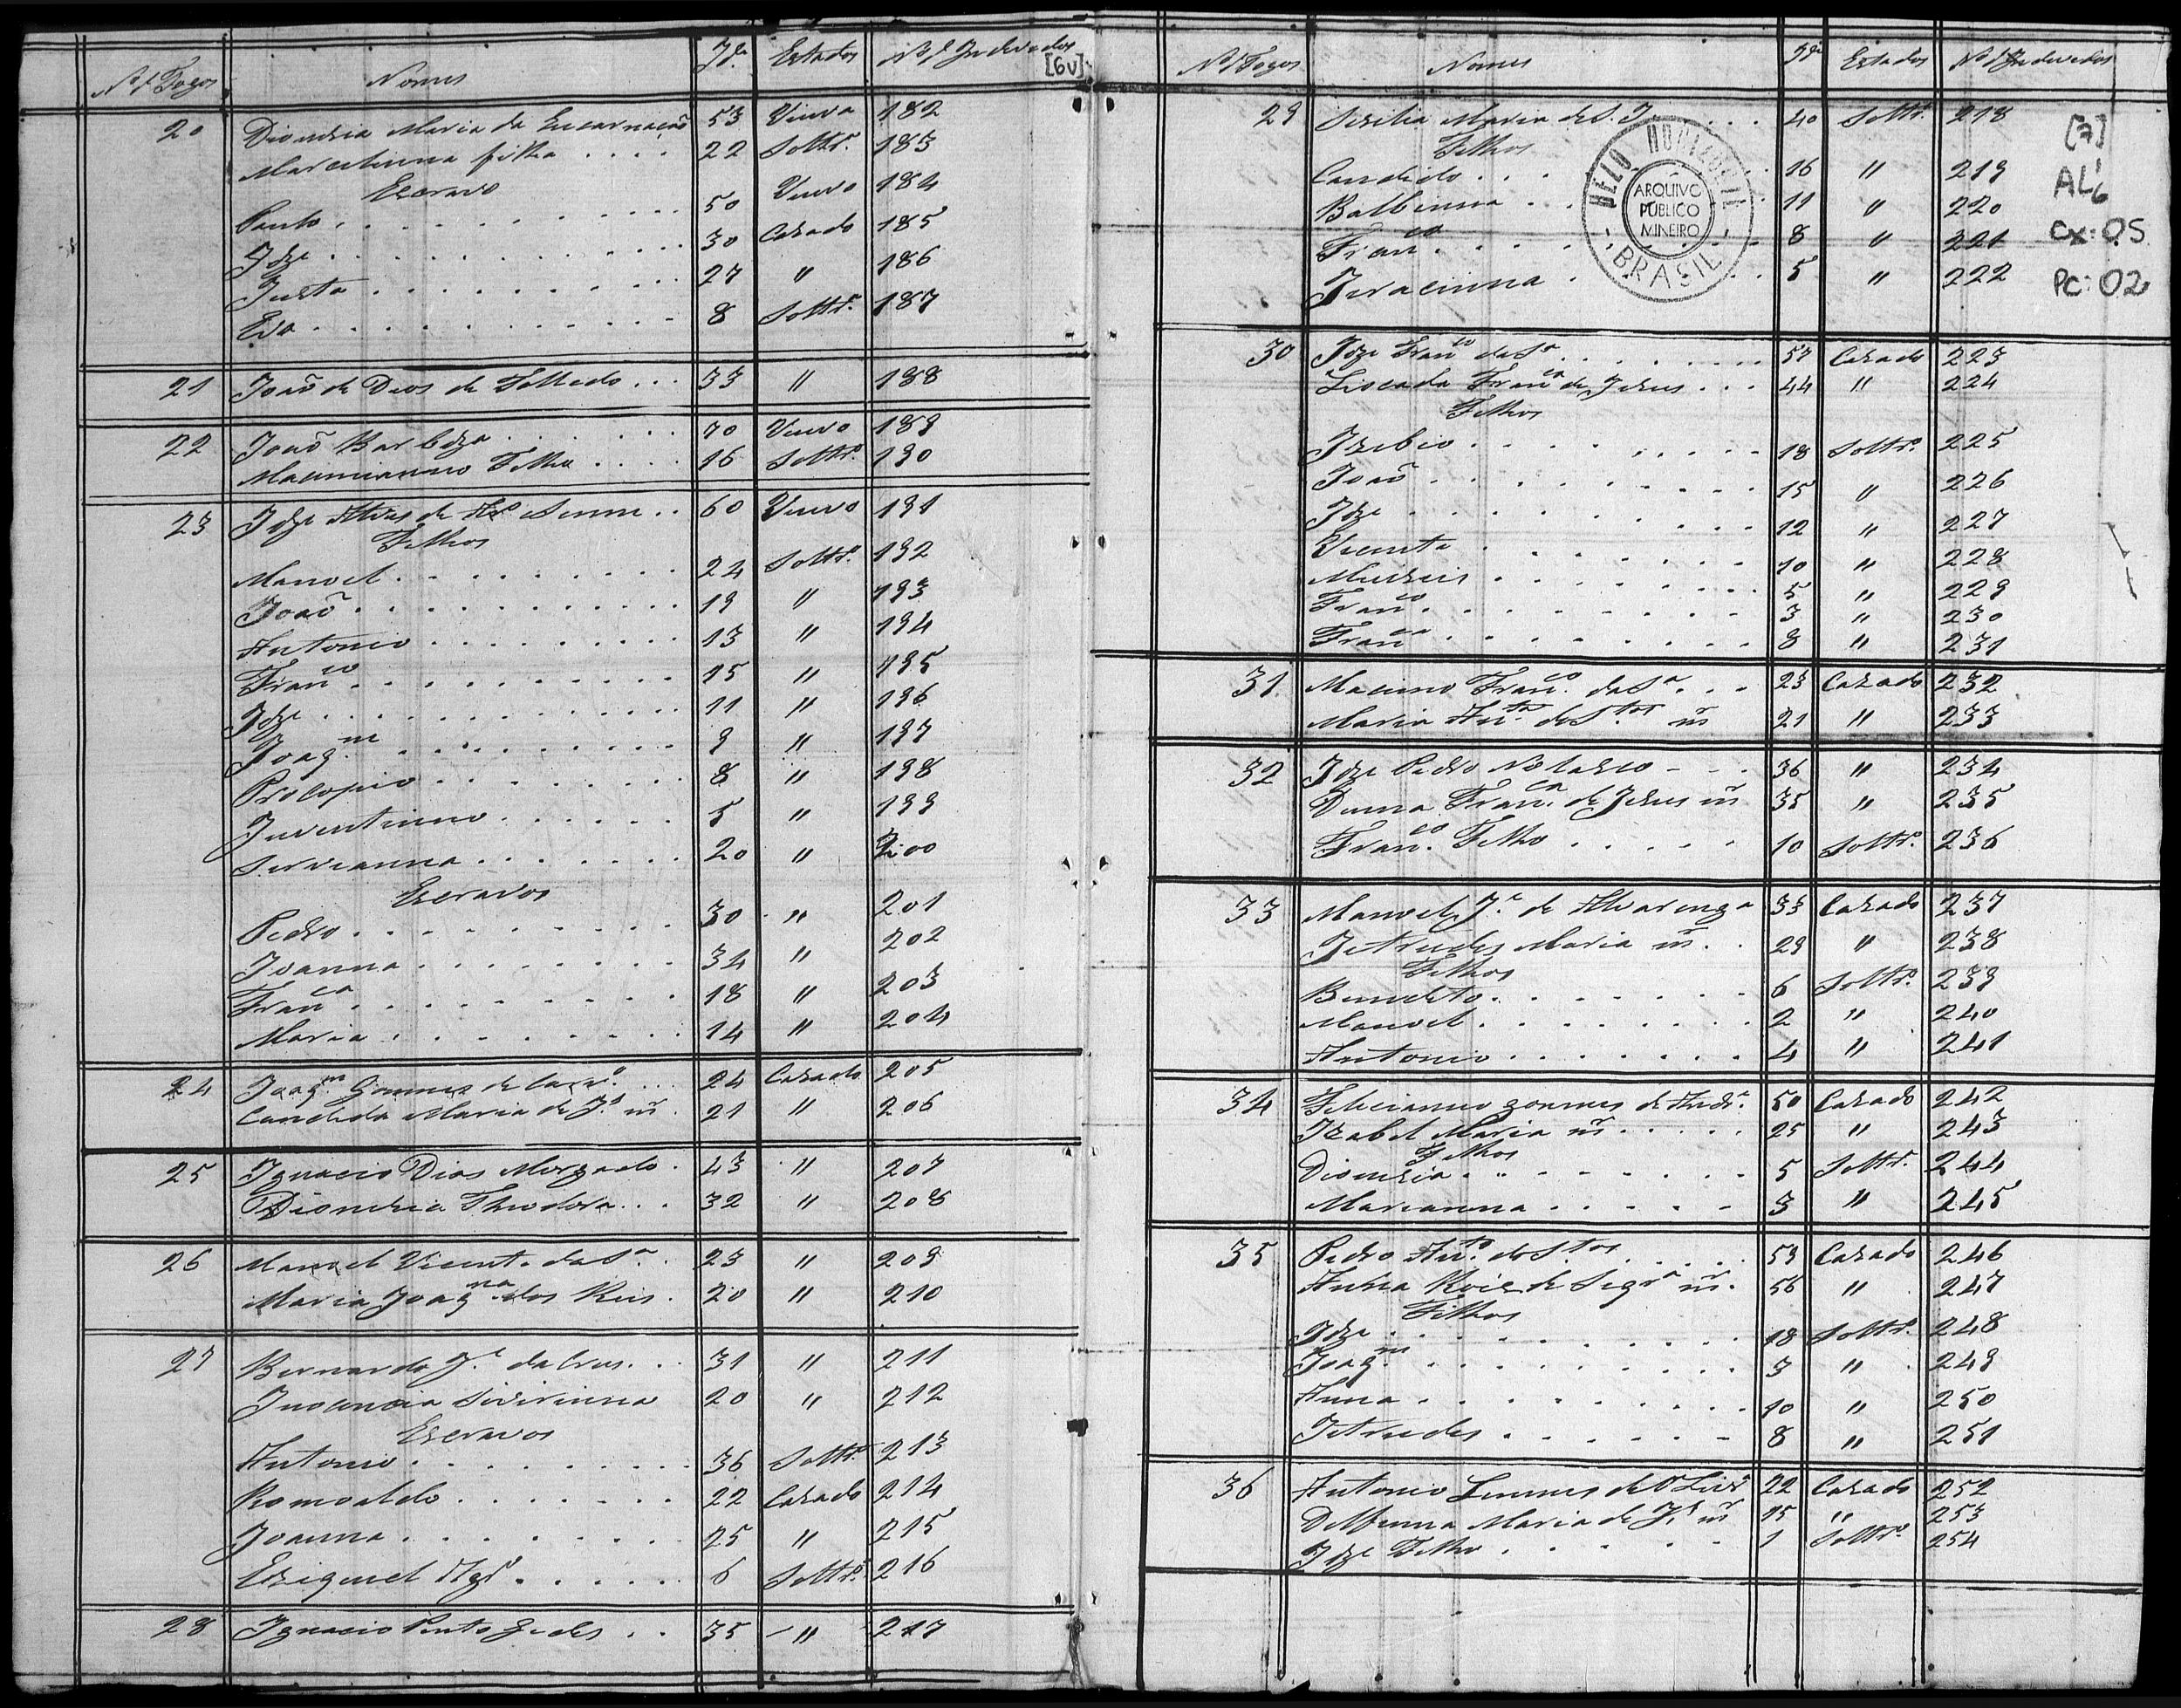 Nº d Fogos Nomes Ide Estados Nº d Indeviduos
[6v]
20 Dionizia Maria da Encarnação 53 Viuva 182
Marcelinna filha . . . . 22 Soltrª 183
Escravo
Pinto . . . . . . . 50 Viuvo 184
Joze . . . . . . . 30 Cazado 185
Justa . . . . . . . 27 " 186
Eva . . . . . . . 8 Soltrª 187
21 João de Deos de Tolledo . . . 33 " 188
22 João Barboza . . . . . 70 Viuvo 189
Maximianno Filho . . . . 16 Soltrº 190
23 Joze Alves de . . 60 Viuvo 191
Filhos
Manoel . . . . . . . 24 Soltrº 192
João . . . . . . . 19 " 193
Antonio . . . . . . . 13 " 194
Franco . . . . . . . 15 " 195
Joze . . . . . . . 11 " 196
Joaqm . . . . . . . 9 " 197
Procopio . . . . . . . 8 " 198
Juventinno . . . . . . 5 " 199
Servianna . . . . . . . 20 " 200
Escravos
Pedro . . . . . . . 30 " 201
Joanna . . . . . . . 34 " 202
Franca . . . . . . . 18 " 203
Maria . . . . . . . 14 " 204
24 Joaqm Gommes de . . . 24 Cazado 205
Candida Maria de Js m̃ . 21 " 206
25 Ignacio Dias Morgado . 43 " 207
Dionizia Theodora . . . 32 " 208
26 Manoel Vicente da Sª . 23 " 209
Maria Joaqna dos Reis . 20 " 210
27 Bernardo Je da Crus . . 31 " 211
Inocencia Sivirinna 20 " 212
Escravos
Antonio . . . . . . . 36 Soltrº 213
Romoaldo . . . . . . . 22 Cazado 214
Joanna . . . . . . . 25 " 215
Eziquiel . . . . . 6 Soltrº 216
28 Ignacio Pinto Gudes . . 35 " 217
Nº d Fogos Nomes Ide Estados Nº d Indeviduos
29 Sizilia Maria de S. J. . . . 40 Soltrª 218
Filhos
Candido . . . . . . . 16 " 219
Balbinna . . . . . . . 11 " 220
Franco . . . . . . . 8 " 221
Juracinna . . . . . . 5 " 222
[7]
AL'6
Cx: 05
PC: 02
BELO HORIZONTE
ARQUIVO
PÚBLICO
MINEIRO
- BRASIL -
30 Joze Franco da Sª . . . . . 57 Cazado 223
Liocada Franca de Jesus . . . 44 " 224
Filhos
Izebio . . . . . . . 18 Soltrº 225
João . . . . . . . 15 " 226
Joze . . . . . . . 12 " 227
Vicenta . . . . . . . 10 " 228
. . . . . . . 5 " 229
Franco . . . . . . . 3 " 230
Franca . . . . . . . 8 " 231
31 Maximo Franco da Sª . . . 23 Cazado 232
Maria Anta de Stos m̃ 21 " 233
32 Joze Pedro Nolasco - - . 36 " 234
Franca de Jesus m̃ 35 " 235
Franco Filho . . . . . 10 Soltrº 236
33 Manoel Je de Alvarenga 33 Cazado 237
Jetrudes Maria m̃ . . 29 " 238
Filhos
Benedito . . . . . . . 6 Soltrº 239
Manoel . . . . . . . 2 " 240
Antonio . . . . . . . 4 " 241
34 Felicianno gommes de Andrª 50 Cazado 242
Izabel Maria m̃ . . . . . 25 " 243
Filhos
Dionizia . . . . . . . 5 Soltrª 244
Marianna . . . . . 3 " 245
35 Pedro Anto dos Stos . . . . 59 Cazado 246
Anna Roiz de m̃ . 56 " 247
Filhos
Joze . . . . . . . 18 Soltrº 248
Joaqm . . . . . . . 3 " 249
Anna . . . . . . . 10 " 250
Jetrudes . . . . . . 8 " 251
36 Antonio Lemmes de Olivrª 22 Cazado 252
Delfinna Maria de Js m̃ 15 " 253
Joze Filho . . . . . . 1 Soltrº 254